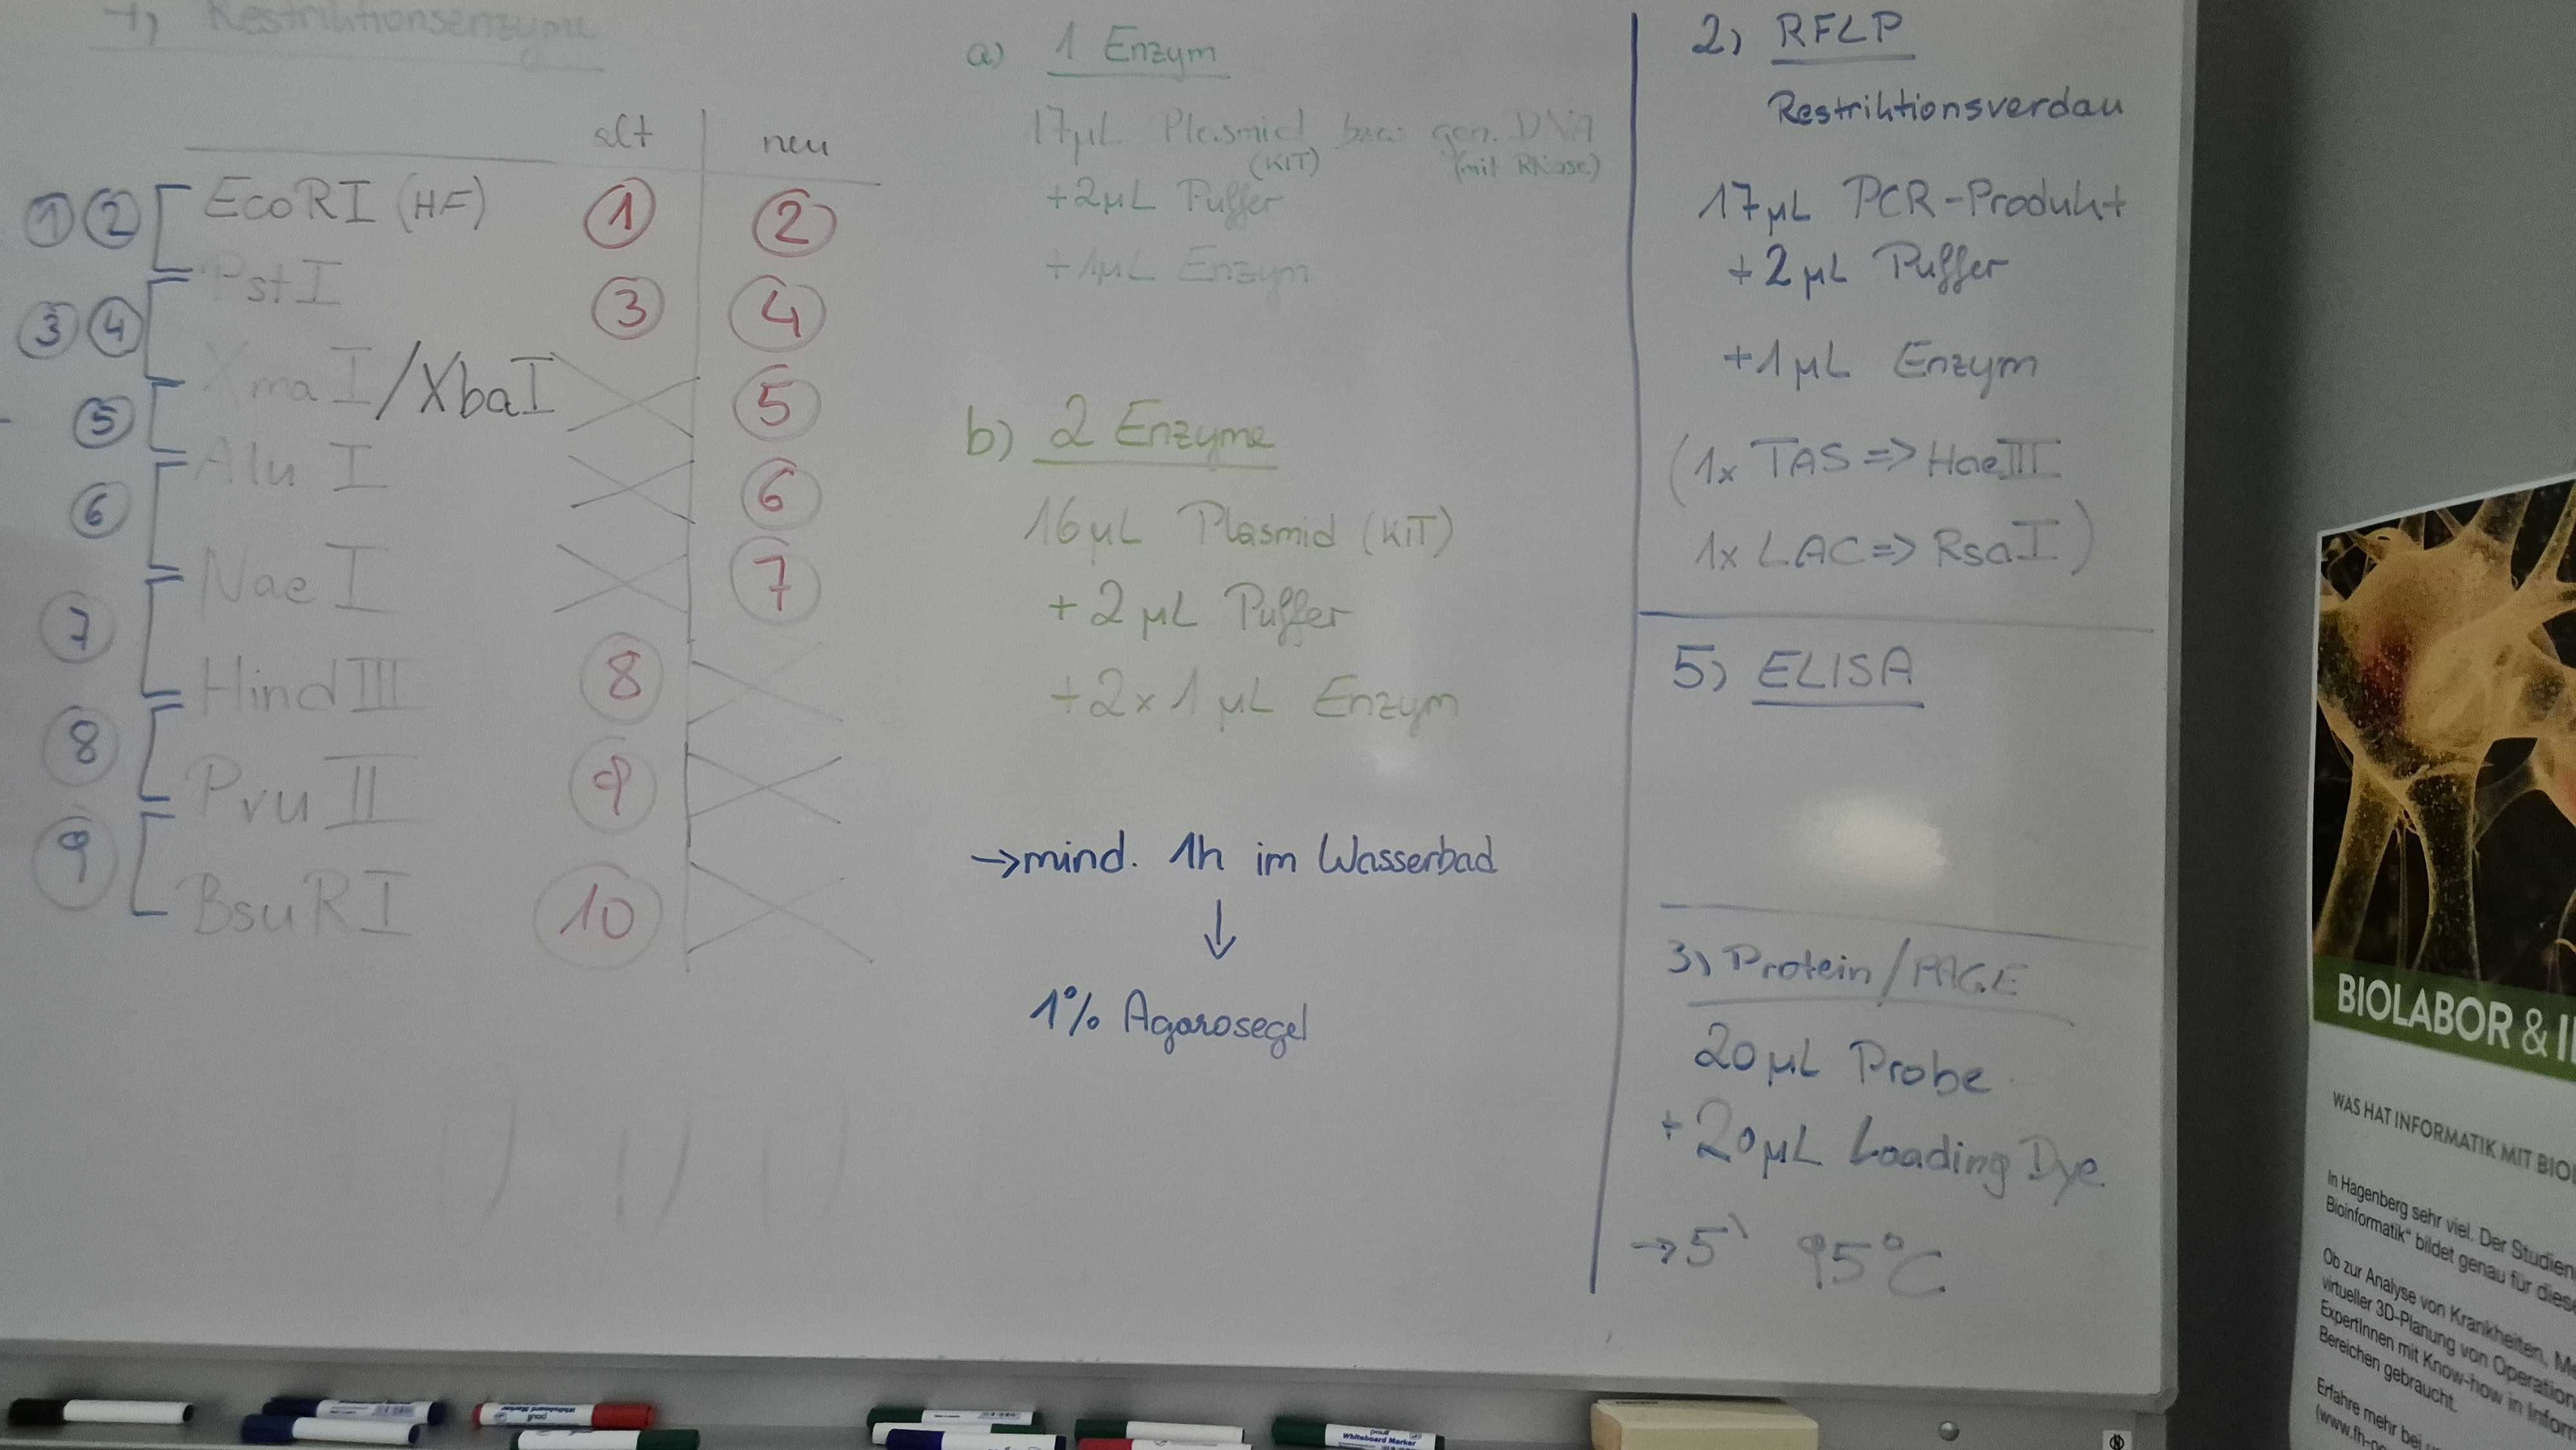 1) Restriktionsenzyme
alt neu
① ② EcoRI (HF) ① ②
PstI ③ ④
③ ④
XmaI/XbaI ⑤
⑤
Alu I ⑥
⑥
Nae I ⑦
⑦
Hind III ⑧
⑧
Pvu II ⑨
⑨
BsuRI ⑩
a) 1 Enzym
17µL Plasmid bzw. gen. DNA
(KIT) (mit RNase)
+2µL Puffer
+1µL Enzym
b) 2 Enzyme
16µL Plasmid (KIT)
+ 2 µL Puffer
+2x1 µL Enzym
→ mind. 1h im Wasserbad
↓
1% Agarosegel
2) RFLP
Restriktionsverdau
17µL PCR-Produkt
+ 2 µL Puffer
+1 µL Enzym
(1x TAS => HaeIII
1x LAC => RsaI)
5) ELISA
3) Protein/PAGE
20µL Probe
+ 20µL Loading Dye
→ 5` 95°C
BIOLABOR &
WAS HAT INFORMATIK MIT
In Hagenberg sehr viel. Der
Bioinformatik" bildet genau für
Ob zur Analyse von Krankheiten,
virtueller 3D-Planung von
ExpertInnen mit Know-how in
Bereichen gebraucht.
Erfahre mehr bei
Whiteboard Marker